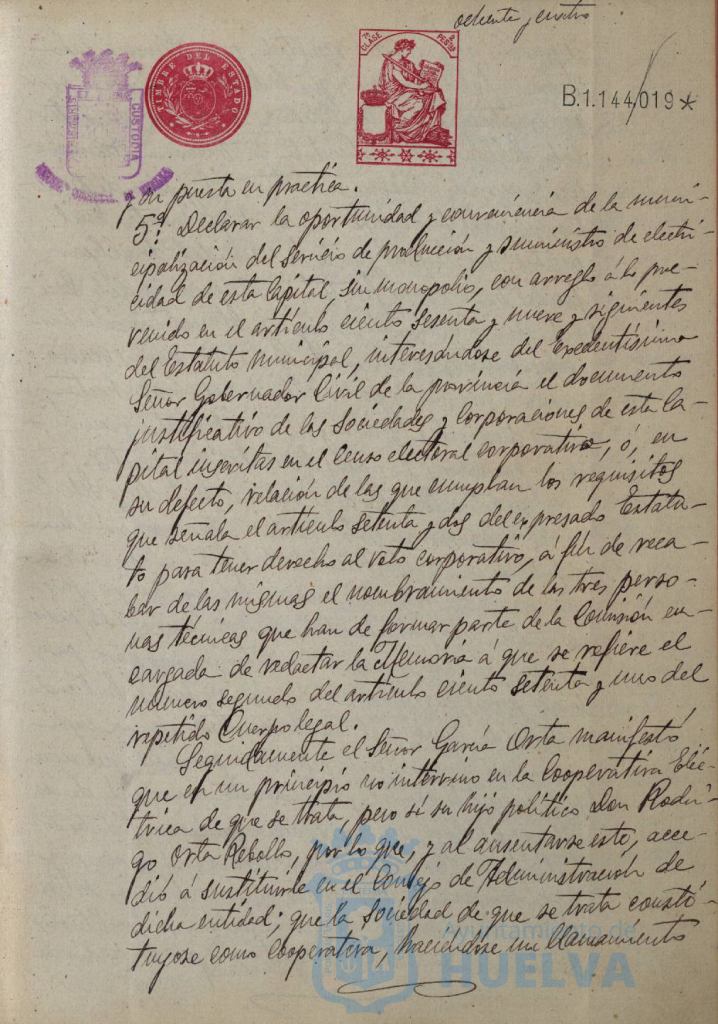 ochenta y cuatro
TIMBRE DEL ESTADO
7ª CLASE
2 PESETAS
CUSTODIA
B.1.144,019*
y su puesta en práctica.
5º. Declarar la oportunidad y conveniencia de la muni-
cipalización del servicio de producción y suministro de electri-
cidad de esta Capital, sin monopolio, con arreglo á lo pre-
venido en el artículo ciento sesenta y nueve y siguientes
del Estatuto Municipal, interesándose del Excelentísimo
Señor Gobernador Civil de la provincia el documento
justificativo de las Sociedades y Corporaciones de esta Ca-
pital inscritas en el Censo electoral corporativo, ó, en
su defecto, relación de las que cumplan los requisitos
que señala el artículo setenta y dos del expresado Estatu-
to para tener derecho al voto corporativo, á fin de reca-
bar de las mismas el nombramiento de las tres perso-
nas técnicas que han de formar parte de la Comisión en-
cargada de redactar la Memoria á que se refiere el
número segundo del artículo ciento setenta y uno del
repetido Cuerpo legal.
Seguidamente el Señor García Orta manifestó
que en un principio no intervino en la Cooperativa Eléc-
trica de que se trata, pero sí su hijo político Don Rodri-
go Orta Rebollo, por lo que, y al ausentarse este, acce-
dió á sustituirle en el Consejo de Administración de
dicha entidad; que la Sociedad de que se trata constí-
tuyose como Cooperativa, haciéndose un llamamiento
Ayuntamiento de
HUELVA